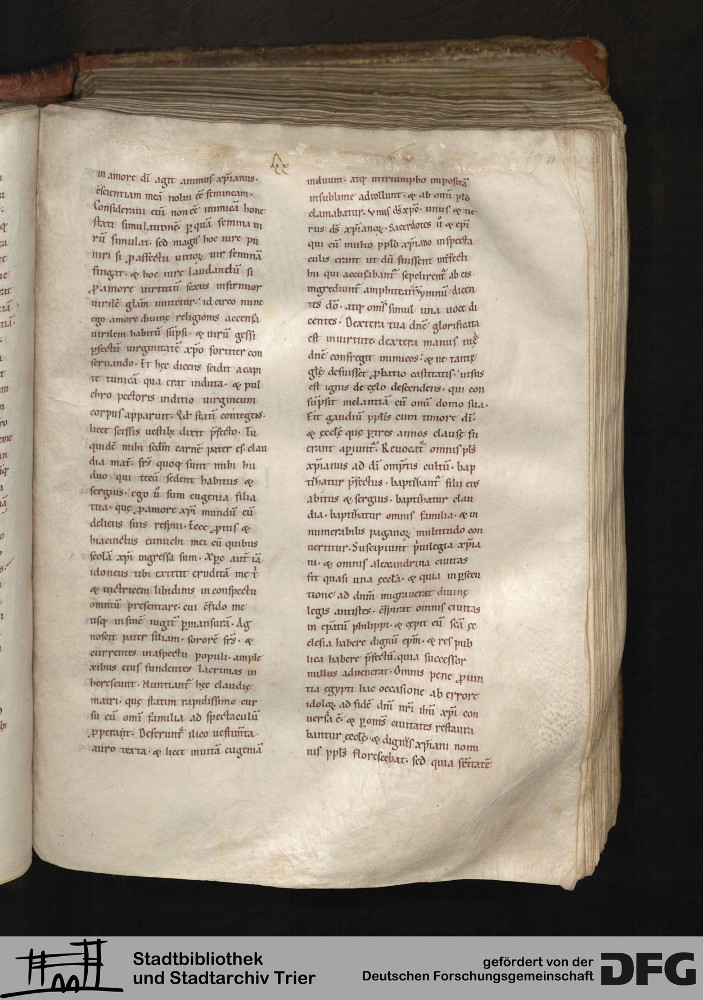 in amore di agit animus xp̄ianus.
Considerans eni͞ non eē inimicā hone
stati simulationē p quā femina ui
rū simulat. sed magis hoc iure pū
niri si p affectu uitioꝝ uir feminā
fingit. & hoc iure laudandū si
p amore uirtutū sexus infirmior
uirilē glām imitetur. id circo nunc
ego amore diuine religionis accensa
uirilem habitū sūpsi. & uirū gessi
pfectū uirginitatē xp̄o fortiter con
seruando. Et hęc dicens scidit a capi
te tunicā qua erat induta. & pul
chro pectoris inditio uirgineum
corpus apparuit. Qd statī contegens.
licet scissis uestib; dixit pfecto. Tu
quidē mihi scdm carnē pater es. clau
dia mat̄. frs quoq; sunt mihi hii
duo qui tecū sedent habitus &
sergius. ego u̾ sum eugenia filia
tua. que p amore xp̄i mundū cū
deliciis suis respui. Ecce ptus &
hiacinctus eunuchi mei cū quibus
scolā xp̄i ingressa sum. Xp̄c aut̄ iā
& uictricem libidinis in conspectu
omniū presentaret. cui cfido me
usq; in finē iugit pmansurā. Ag
noscit pater filiam. sororē frs. &
currentes in aspectu populi. ample
xibus eius fundentes lacrimas in
heresunt. Nuntiant hęc claudię
matri. quę statim rapidissimo cur
su cū omī familia ad spectaculū
pperauit. Deferunt ilico uestimta
auro texta. & licet inuitā eugeniā
induunt. atq; in triumpho impositā
in sublime adtollunt. & ab omi pplo
clamabatur. Vnus ds xpc. unus & ue
rus ds xp̄ianoꝝ. Sacerdotes u̾ & epi
qui cū multo pplo xp̄iano in specta
culis erant ut dū fuissent intfecti
hii qui accusabant sepelirent ab eis
ingrediunt amphiteatrū ymnū dicen
tes do. atq; oms simul una uoce di
centes. Dextera tua dne glorificata
est in uirtute dextera manus tuę
dne confregit inimicos. & ne tantę
glę defuisset pbatio castitatis. uisus
est ignis de cęlo descendens. qui con
sūpsit melantiā cū omi domo sua.
Fit gaudiū pplis cum timore di.
& ęcclę quę p tres annos clausę fu
erant apiunt. Reuocat omnis pls
xp̄ianus ad di omptis cultū. bap
tizatur pfectus. baptizant filii eius
abitus & sergius. baptizatur clau
dia. baptizatur omnis familia. & in
numerabilis paganoꝝ multitudo con
uertitur. Suscipiunt priuilegia xp̄ia
ni. & omnis alexandrina ciuitas
fit quasi una ęccla. & quia in psecu
tione ad dnm migrauerat diuinę
legis antistes. cspirat omnis ciuitas
in epatū philippi. & cepit eū sca ęc
clesia habere dignū epm. & res pub
lica habere pfectū. quia successor
nullus aduenerat. Omnis pene puin
tia egypti hac occasione ab errore
idoloꝝ ad fidē dni nri ihu xp̄i con
uersa ē. & p oms ciuitates restaura
bantur ęcclę. & dignitas xp̄iani nomi
nis pplis florescebat. sed quia scītatē
Stadtbibliothek
und Stadtarchiv Trier
gefördert von der
Deutschen Forschungsgemeinschaft
DFG